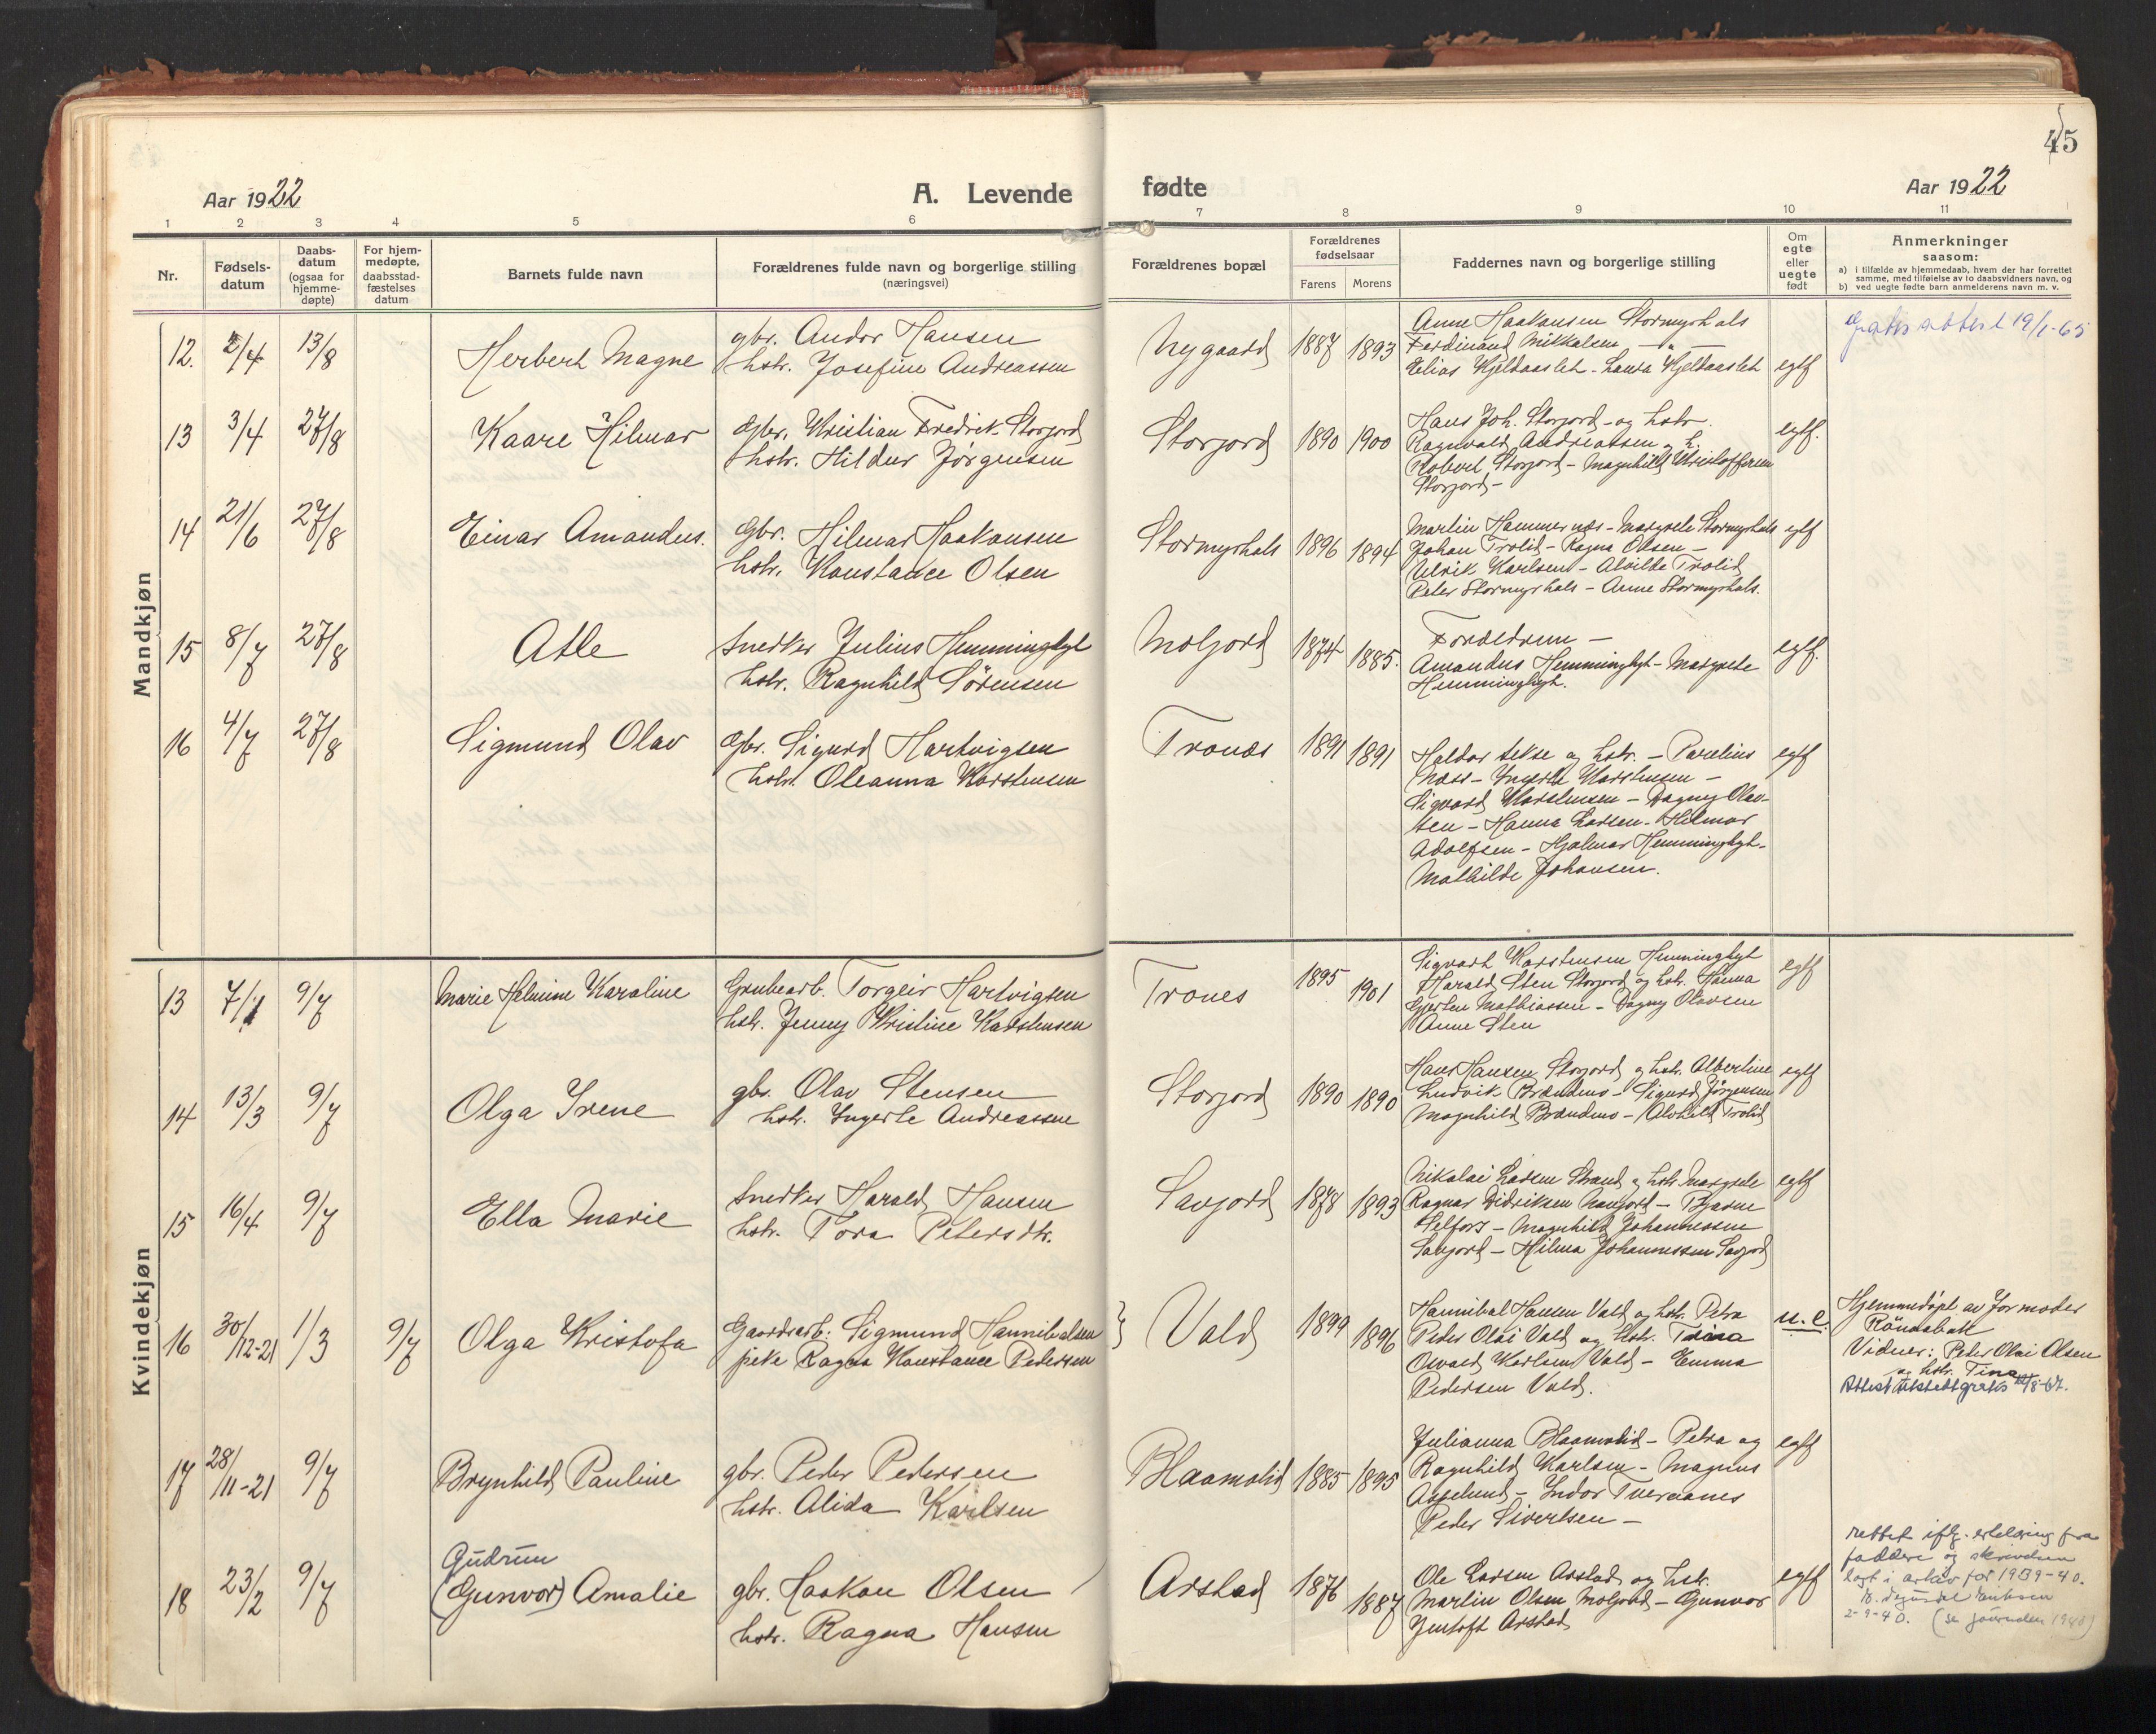 45
Aar 1922
A. Levende fødte
Aar 1922
1 2 3 4 5 6 7 8 9 10 11
Nr.
Fødsels-
datum
Daabs-
datum
(ogsaa for
hjemme-
døpte)
For hjem-
medøpte,
daabsstad-
fæstelses
datum
Barnets fulde navn
Forældrenes fulde navn og borgerlige stilling
(næringsvei)
Forældrenes bopæl
Forældrenes
fødselsaar
Farens Morens
Faddernes navn og borgerlige stilling
Om
egte
eller
uegte
født
Anmerkninger
saasom:
a) i tilfælde av hjemmedaab, hvem der har forrettet
samme, med tilføielse av to daabsvidners navn, og
b) ved uegte fødte barn anmelderens navn m. v.
Mandkjøn
12. 2/4 13/8
Herbert Magne
gbr. Andor Hansen
hstr. Josefine Andreassen
Nygaard 1887 1893
Anne Haakonsen Stormyrhals
Ferdinand Mikkalsen — " —
Elias Kjeldaaslet - Laura Kjeldaaslet
egtf
Gratis attest 19/1-65
13 3/4 27/8
Kaare Hilmar
Gbr. Kristian Fredrik Storjord
hstr. Hildur Jørgensen
Storjord 1890 1900
Hans Joh. Storjord og hstr.
Ragnvald Andreassen og h.
Robert Storjord - Magnhild Kristoffersen
Storjord -
egtf.
14 21/6 27/8
Einar Amandus.
Gbr. Hilmar Haakonsen
hstr. Konstance Olsen
Stormyrhals 1896 1894
Martin Hammernes - Margrete Stormyrhals
Johan Trolid - Ragna Olsen -
Ulrik Karlsen - Alvilde Trolid
Peter Stormyrhals - Anne Stormyrhals.
egtf
15 8/7 27/8
Atle
Snedker Julius Hemmingbyt
hstr. Ragnhild Sørensen
Moljord 1874 1885.
Forældrene -
Amandus Hemmingbyt - Margrete
Hemmingbyt.
egtf.
16 4/7 27/8
Sigmund Olav
Gbr. Sigurd Hartvigsen
hstr. Oleanna Karstensen
Trones 1891 1891
Haldor og hstr. - Parelius
Næss - Ingerte Karstensen -
Sigvard Karstensen - Dagny Olav-
sen - Hanna Larsen - Hilmar
Adolfsen - Hjalmar Hemmingbyt -
Mathilde Johansen.
egtf
Kvindekjøn
13 7/1 9/7
Marie Helmine Karoline
Grubearb. Torgeir Hartvigsen
hstr. Jenny Kristine Karstensen
Trones 1895 1901
Sigvart Karstensen Hemmingbyt
Harald Sten Storjord og hstr. Hanna
Mathiassen - Dagny Olavsen
Anne Sten
egtf
14 13/3 9/7
Olga Irene
gbr. Olav Stensen
hstr. Ingerte Andreassen
Storjord 1890 1890
Hans Hansen Storjord og hstr. Albertine
Ludvik Brændmo - Sigurd Jørgensen
Magnhild Brændmo - Alvhild Trolid
egtf
15 16/4 9/7
Ella Marie
Snedker Harald Hansen
hstr. Tora Petersdtr.
Savjord 1878 1893
Nikolai Larsen Strand og hstr. Margrete
Ragnar Didriksen Navjord - Bjarne
Selfors - Magnhild Johannessen
Savjord - Hilma Johannessen Savjord
egtf
16 30/12-21 1/3 9/7
Olga Kristofa
Gaardsarb. Sigmund Hannibalsen
pike Ragna Konstance Pedersen
Vold 1899 1896
Hannibal Hansen Vold og hstr. Petra
Peder Olai Vold og hstr. Trina
Osvald Karlsen Vold - Emma
Pedersen Vold.
u.e.
Hjemmedøpt av Jormoder
Rönaabakk
Vidner: Peter Olai Olsen
og hstr. Tina
Attest utstedt gratis /8-67.
17 28/11-21 9/7
Brynhild Pauline
gbr. Peder Pedersen
hstr. Alida Karlsen
Blaamolid 1885 1895
Julianna Blaamolid - Petra og
Ragnhild Karlsen - Magnus
Aspelund - Indor Tveraanes
Peder Sivertsen -
egtf
18 23/2 9/7
Gudrun
(Gunvor) Amalie
gbr. Haakon Olsen
hstr. Ragna Hansen
Arstad 1876 1887
Ole Larsen Arstad og hstr.
Martin Olsen Moljord - Gunvor
Jentoft Arstad
egtf
rettet iflg. erklæring fra
faddere og skrivelsen
lagt i arkiv for 1939-40.
2-9-40. (se journalen 1940)